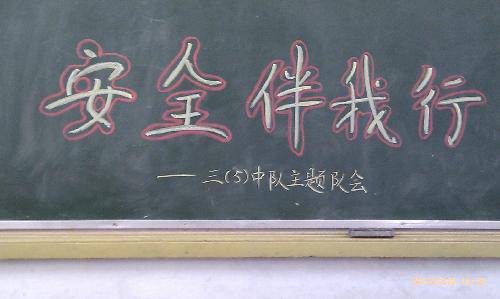 安全伴我行
——三(5)中队主题队会